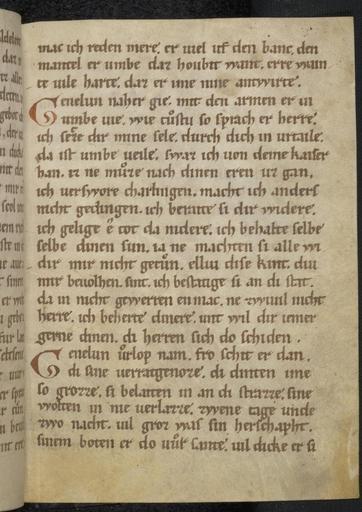 mac ich reden mere. er viel uf den banc. den
mantel er umbe daz houbit want. erre wain
te vile harte. daz er ime nine antwirte.
Genelun naher gie. mit den armen er in
umbe vie. wie tůstu so sprach er herre.
ich seze dir mine sele. durch dich in urtaile.
da ist umbe veile. swaz ich von deme kaiser
han. iz ne můze nach dinen eren uz gan.
ich versvore charlingen. macht ich anders
nicht gedingen. ich beraite si dir widere.
ich gelige e tot da nidere. ich behalte selbe
selbe dinen sun. ia ne machten si alle wi
dir mir nicht getůn. elliu dise kint. diu
mir bevolhen sint. ich bestatige si an di stat.
da in nicht gewerren en mac. ne zwivil nicht
herre. ich beherte dinere. unt wil dir iemer
gerne dinen. di herren sich do schiden.
Genelun ůrlop nam. fro schit er dan.
di sine verratgenoze. di dinten ime
so grozze. si belaitten in an di strazze. sine
wolten in nie verlazze. zwene tage unde
zwo nacht. vil groz was sin herschapht.
sinem boten er do vůr sante. vil dicke er si